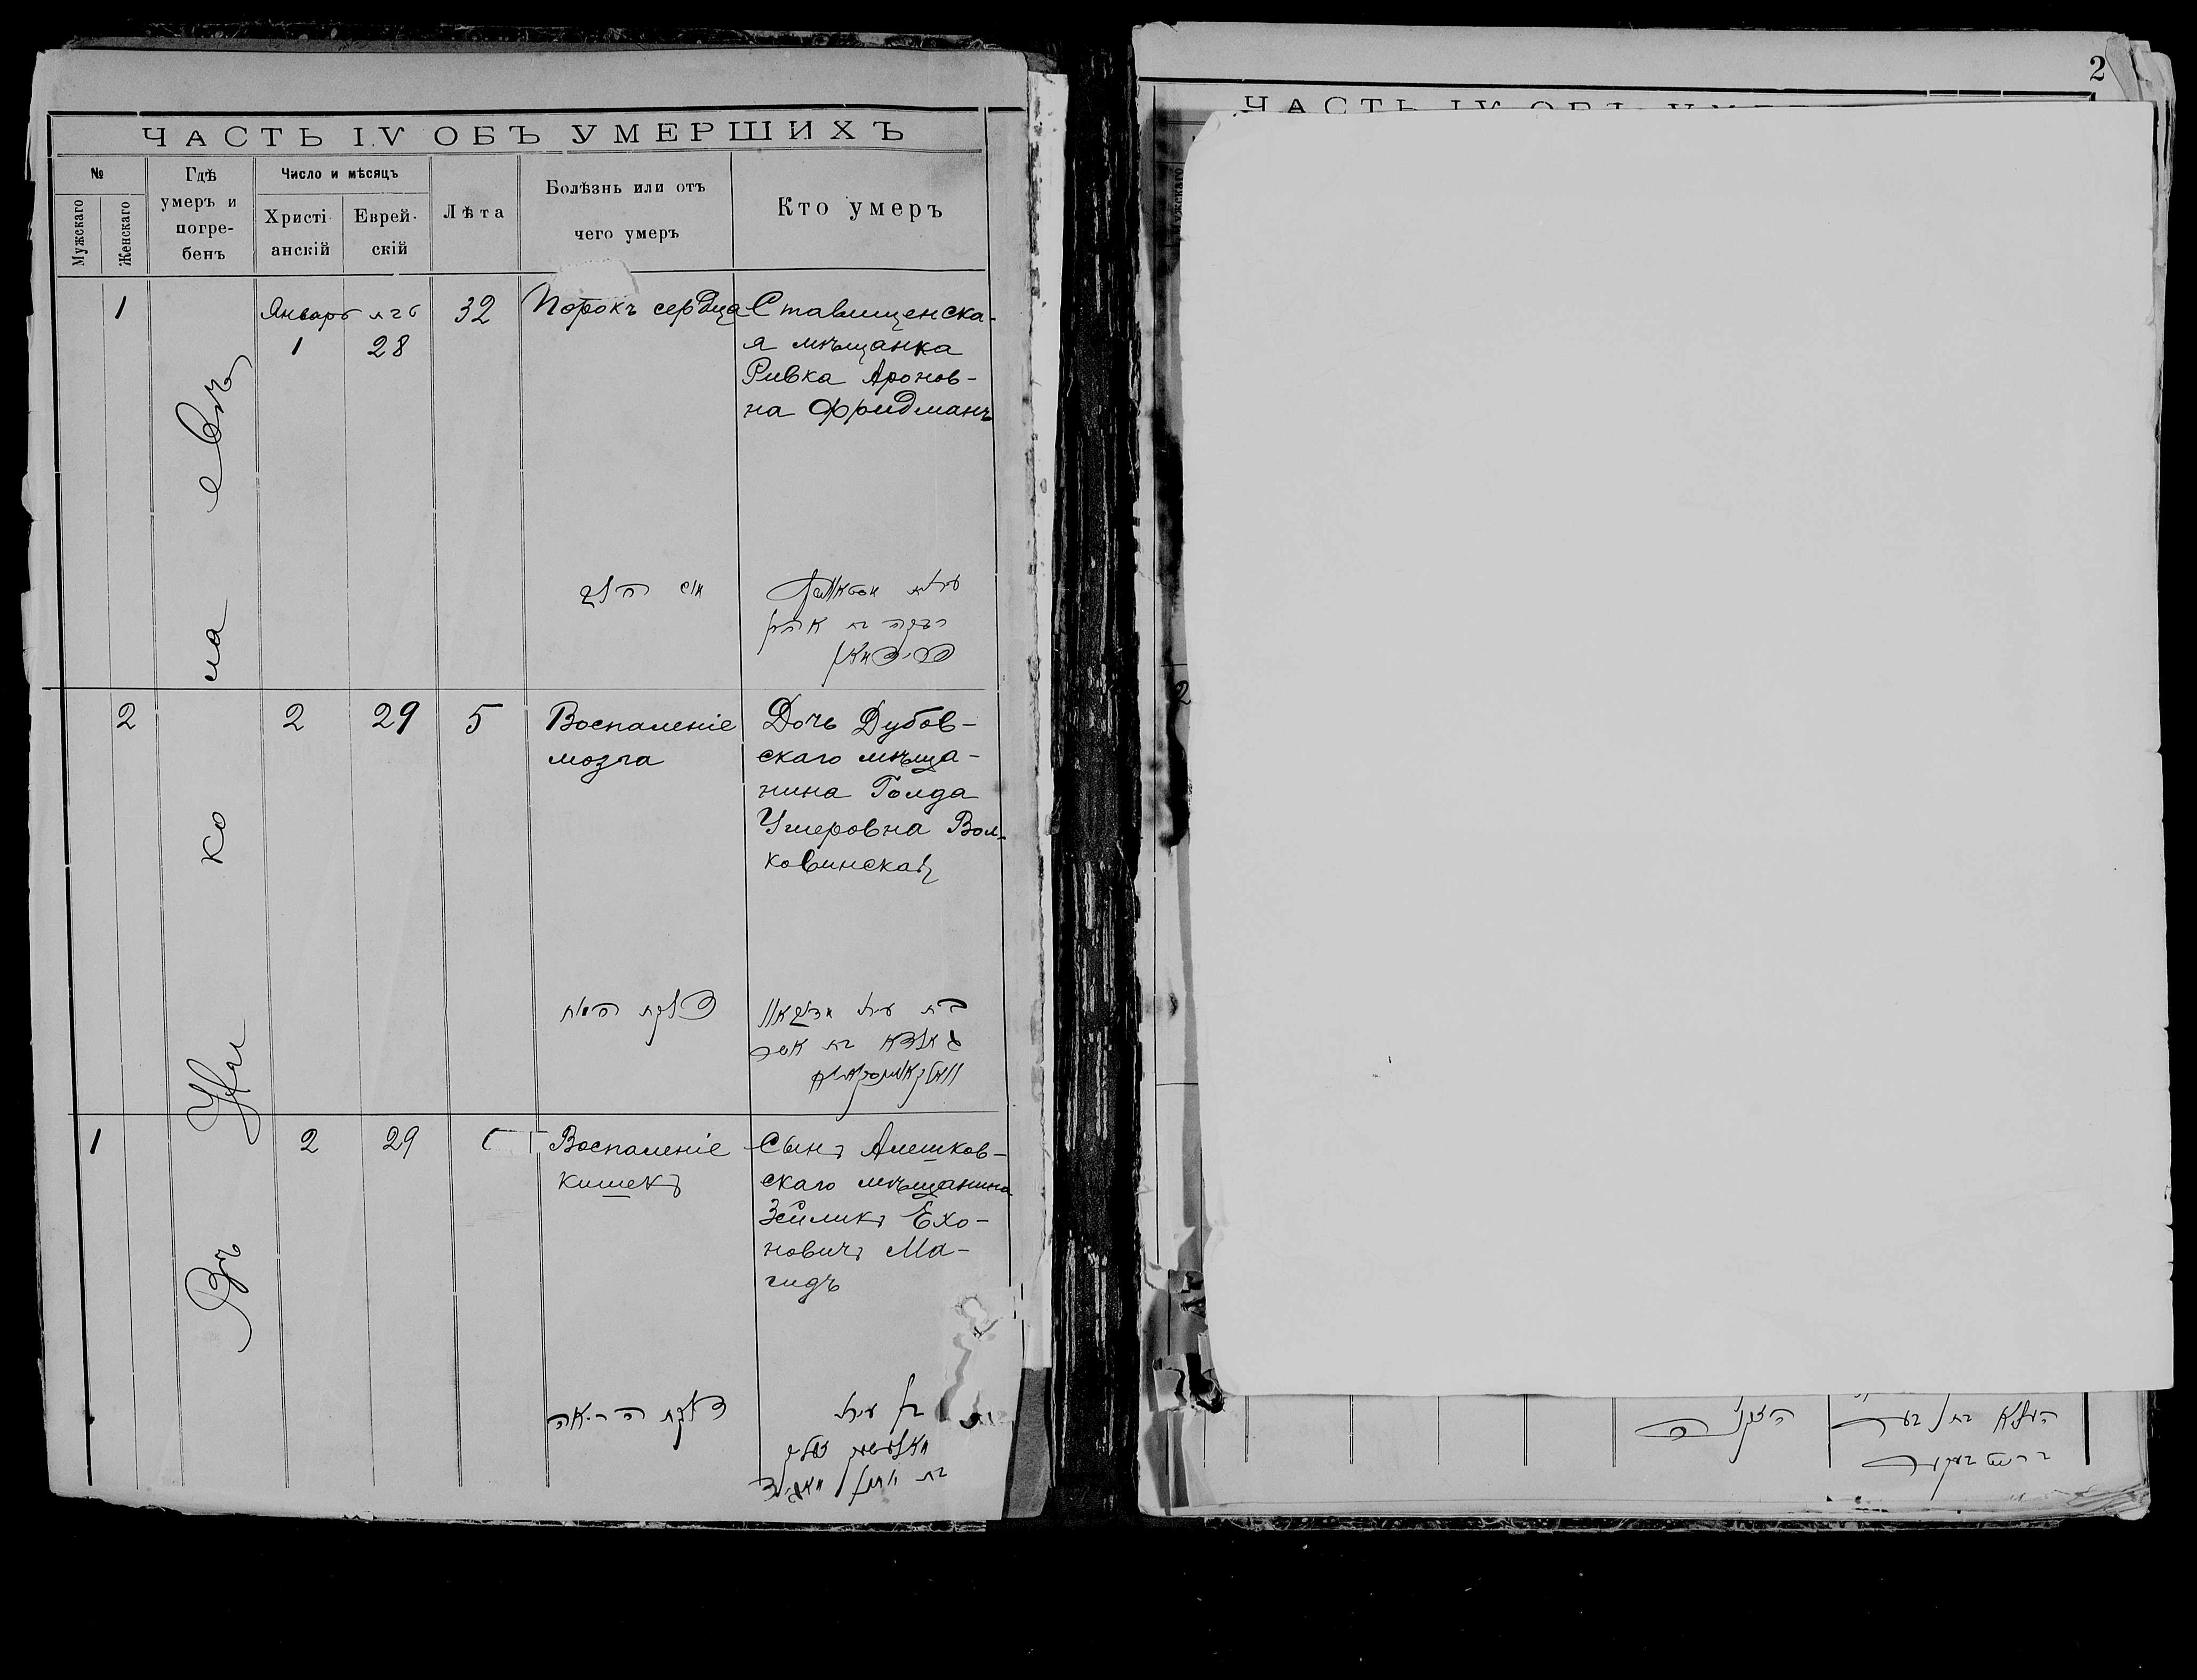 ЧАСТЬ IV ОБЪ УМЕРШИХЪ
№
Мужскаго
Женскаго
Гдѣ
умеръ и
погре-
бенъ
Число и мѣсяцъ
Христі-
анскій
Еврей-
скій
Лѣта
Болѣзнь или отъ
чего умеръ
Кто умеръ
Въ Николаевѣ
1
Январь
1
28
32
Порокъ сердца
Ставищенска-
я мѣщанка
Ривка Аронов-
на Фридманъ
רבקה בת אהרן
פרידמאן
2
2
29
5
Воспаленіе
мозга
Дочь Дубов-
скаго мѣща-
нина Голда
Ушеровна Вол-
ковинская
דלקת המוח
גאלדא בת אשר
1
2
29
Воспаленіе
кишекъ
Сынъ Алешков-
скаго мѣщанина
Зейликъ Ехо-
новичъ Ма-
гидъ
דלקת
2
ЧАСТЬ IV ОБЪ
Мужскаго
2